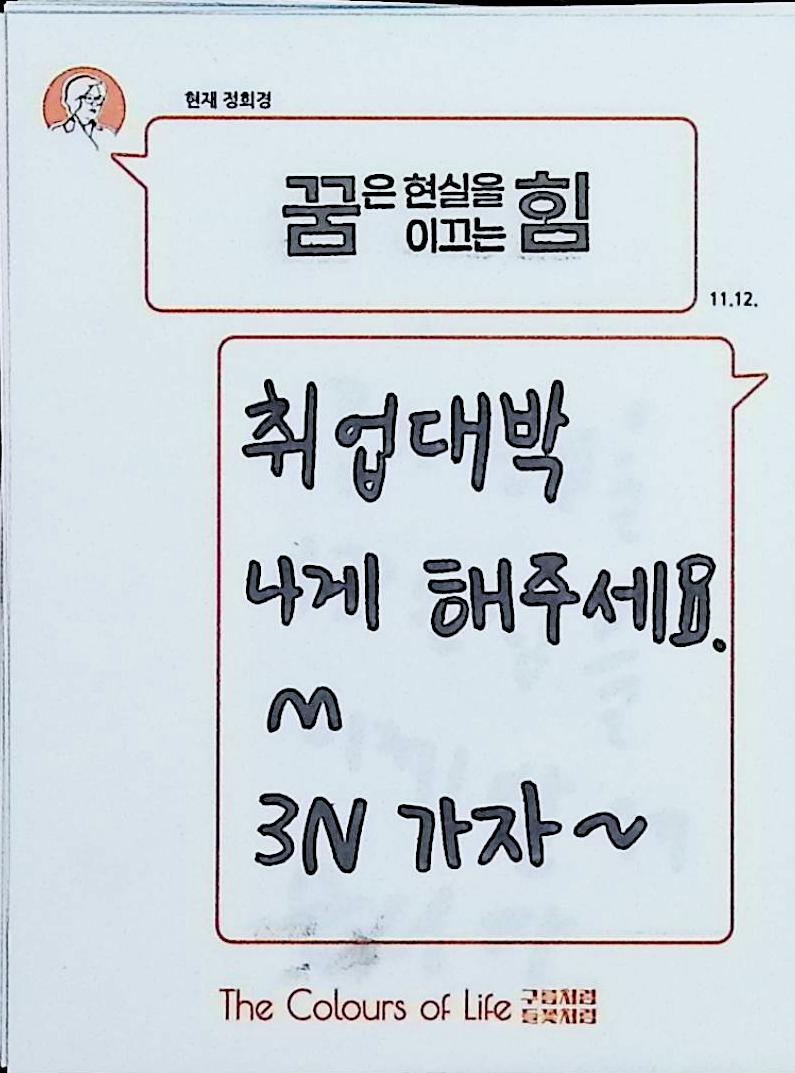 현재 정희경
꿈은 현실을
이끄는 힘
11.12.
취업대박
나게 해주세요.
m
3N 가자~
The Colours of Life 구름처럼
들꽃처럼